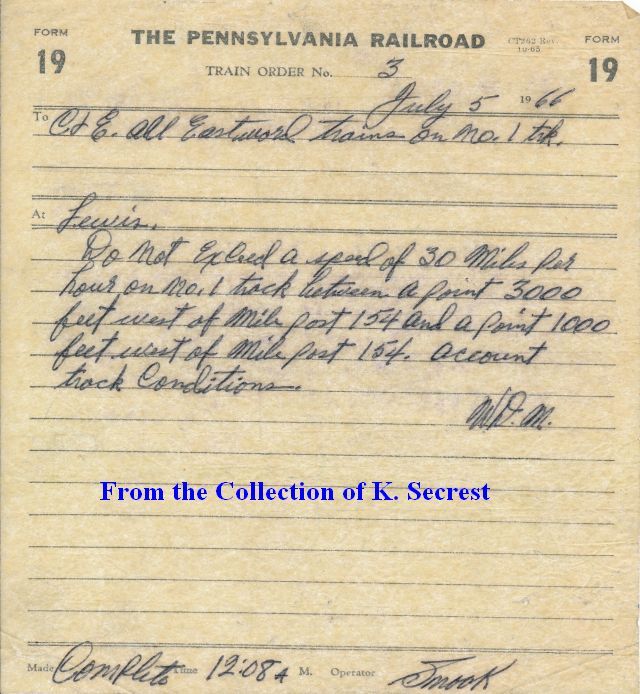 FORM 19
THE PENNSYLVANIA RAILROAD
CT262 Rev. 10-65
FORM 19
TRAIN ORDER No. 3
July 5 1966
To C&E. All Eastward trains on No. 1 trk.
At Lewis.
Do Not Exceed a speed of 30 Miles per
hour on No. 1 track between a point 3000
feet west of Mile post 154 and a point 1000
feet west of Mile post 154. Account
track Conditions.
W.D.M.
From the Collection of K. Secrest
Made Complete Time 12:08 A M. Operator Smook